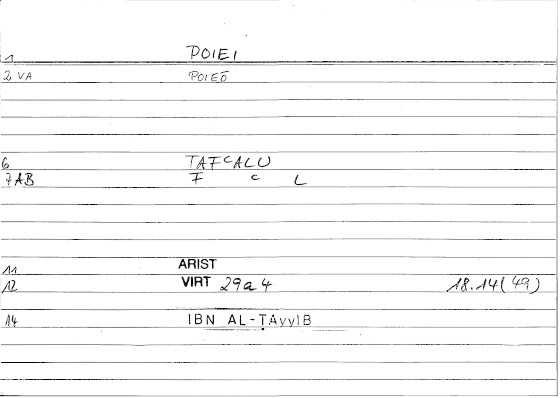 1 POIEI
2 VA POIEŌ
6 TAFᶜALU
7 AB F ᶜ L
11 ARIST
12 VIRT 29a4 18.14(49)
14 IBN AL-ṬAyyIB